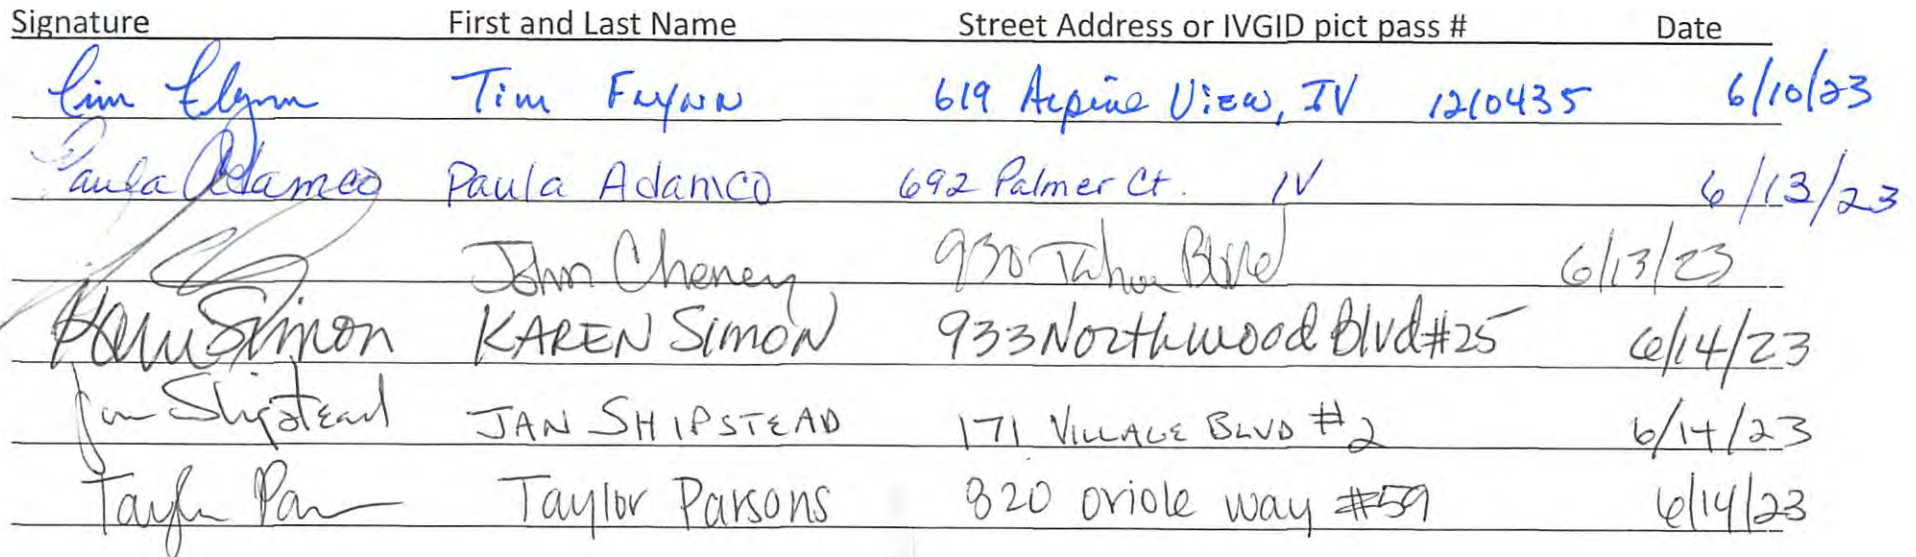 Signature First and Last Name Street Address or IVGID pict pass # Date
Tim Flynn Tim Flynn 619 Alpine View, IV 1210435 6/10/23
Paula Adamco Paula Adamco 692 Palmer Ct. IV 6/13/23
John Cheney 930 Tahoe Blvd 6/13/23
Karen Simon KAREN SIMON 933 Northwood Blvd #25 6/14/23
Jan Shipstead JAN SHIPSTEAD 171 VILLAGE BLVD #2 6/14/23
Taylor Par Taylor Parsons 820 oriole way #59 6/14/23